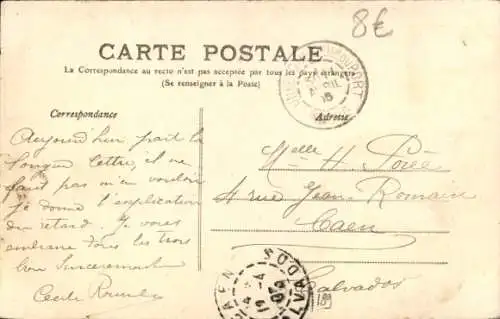 8€
CARTE POSTALE
La Correspondance au recto n'est pas acceptée par tous les pays étrangers
(Se renseigner à la Poste)
Correspondance
Adresse
Aujourd'hui part la
longue lettre, il ne
faut pas m'en vouloir
je donne l'explication
du retard. Je vous
embrasse tous les trois
bien sincerement
Cecile
Melle H. Porée
4 rue Jean Romain
Caen
Calvados
CAEN
CALVADOS